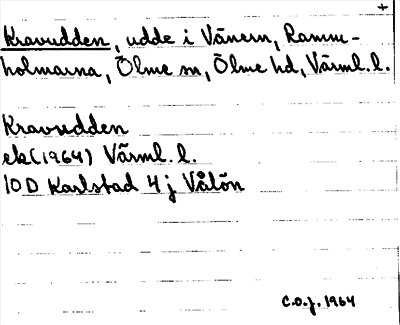 +
Kravudden, udde i Vänern, Ramm-
holmarna, Ölme sn, Ölme hd, Värml. l.
Kravudden
ek (1964) Värml. l.
10D Karlstad 4 j Vålön
C.O.J. 1964